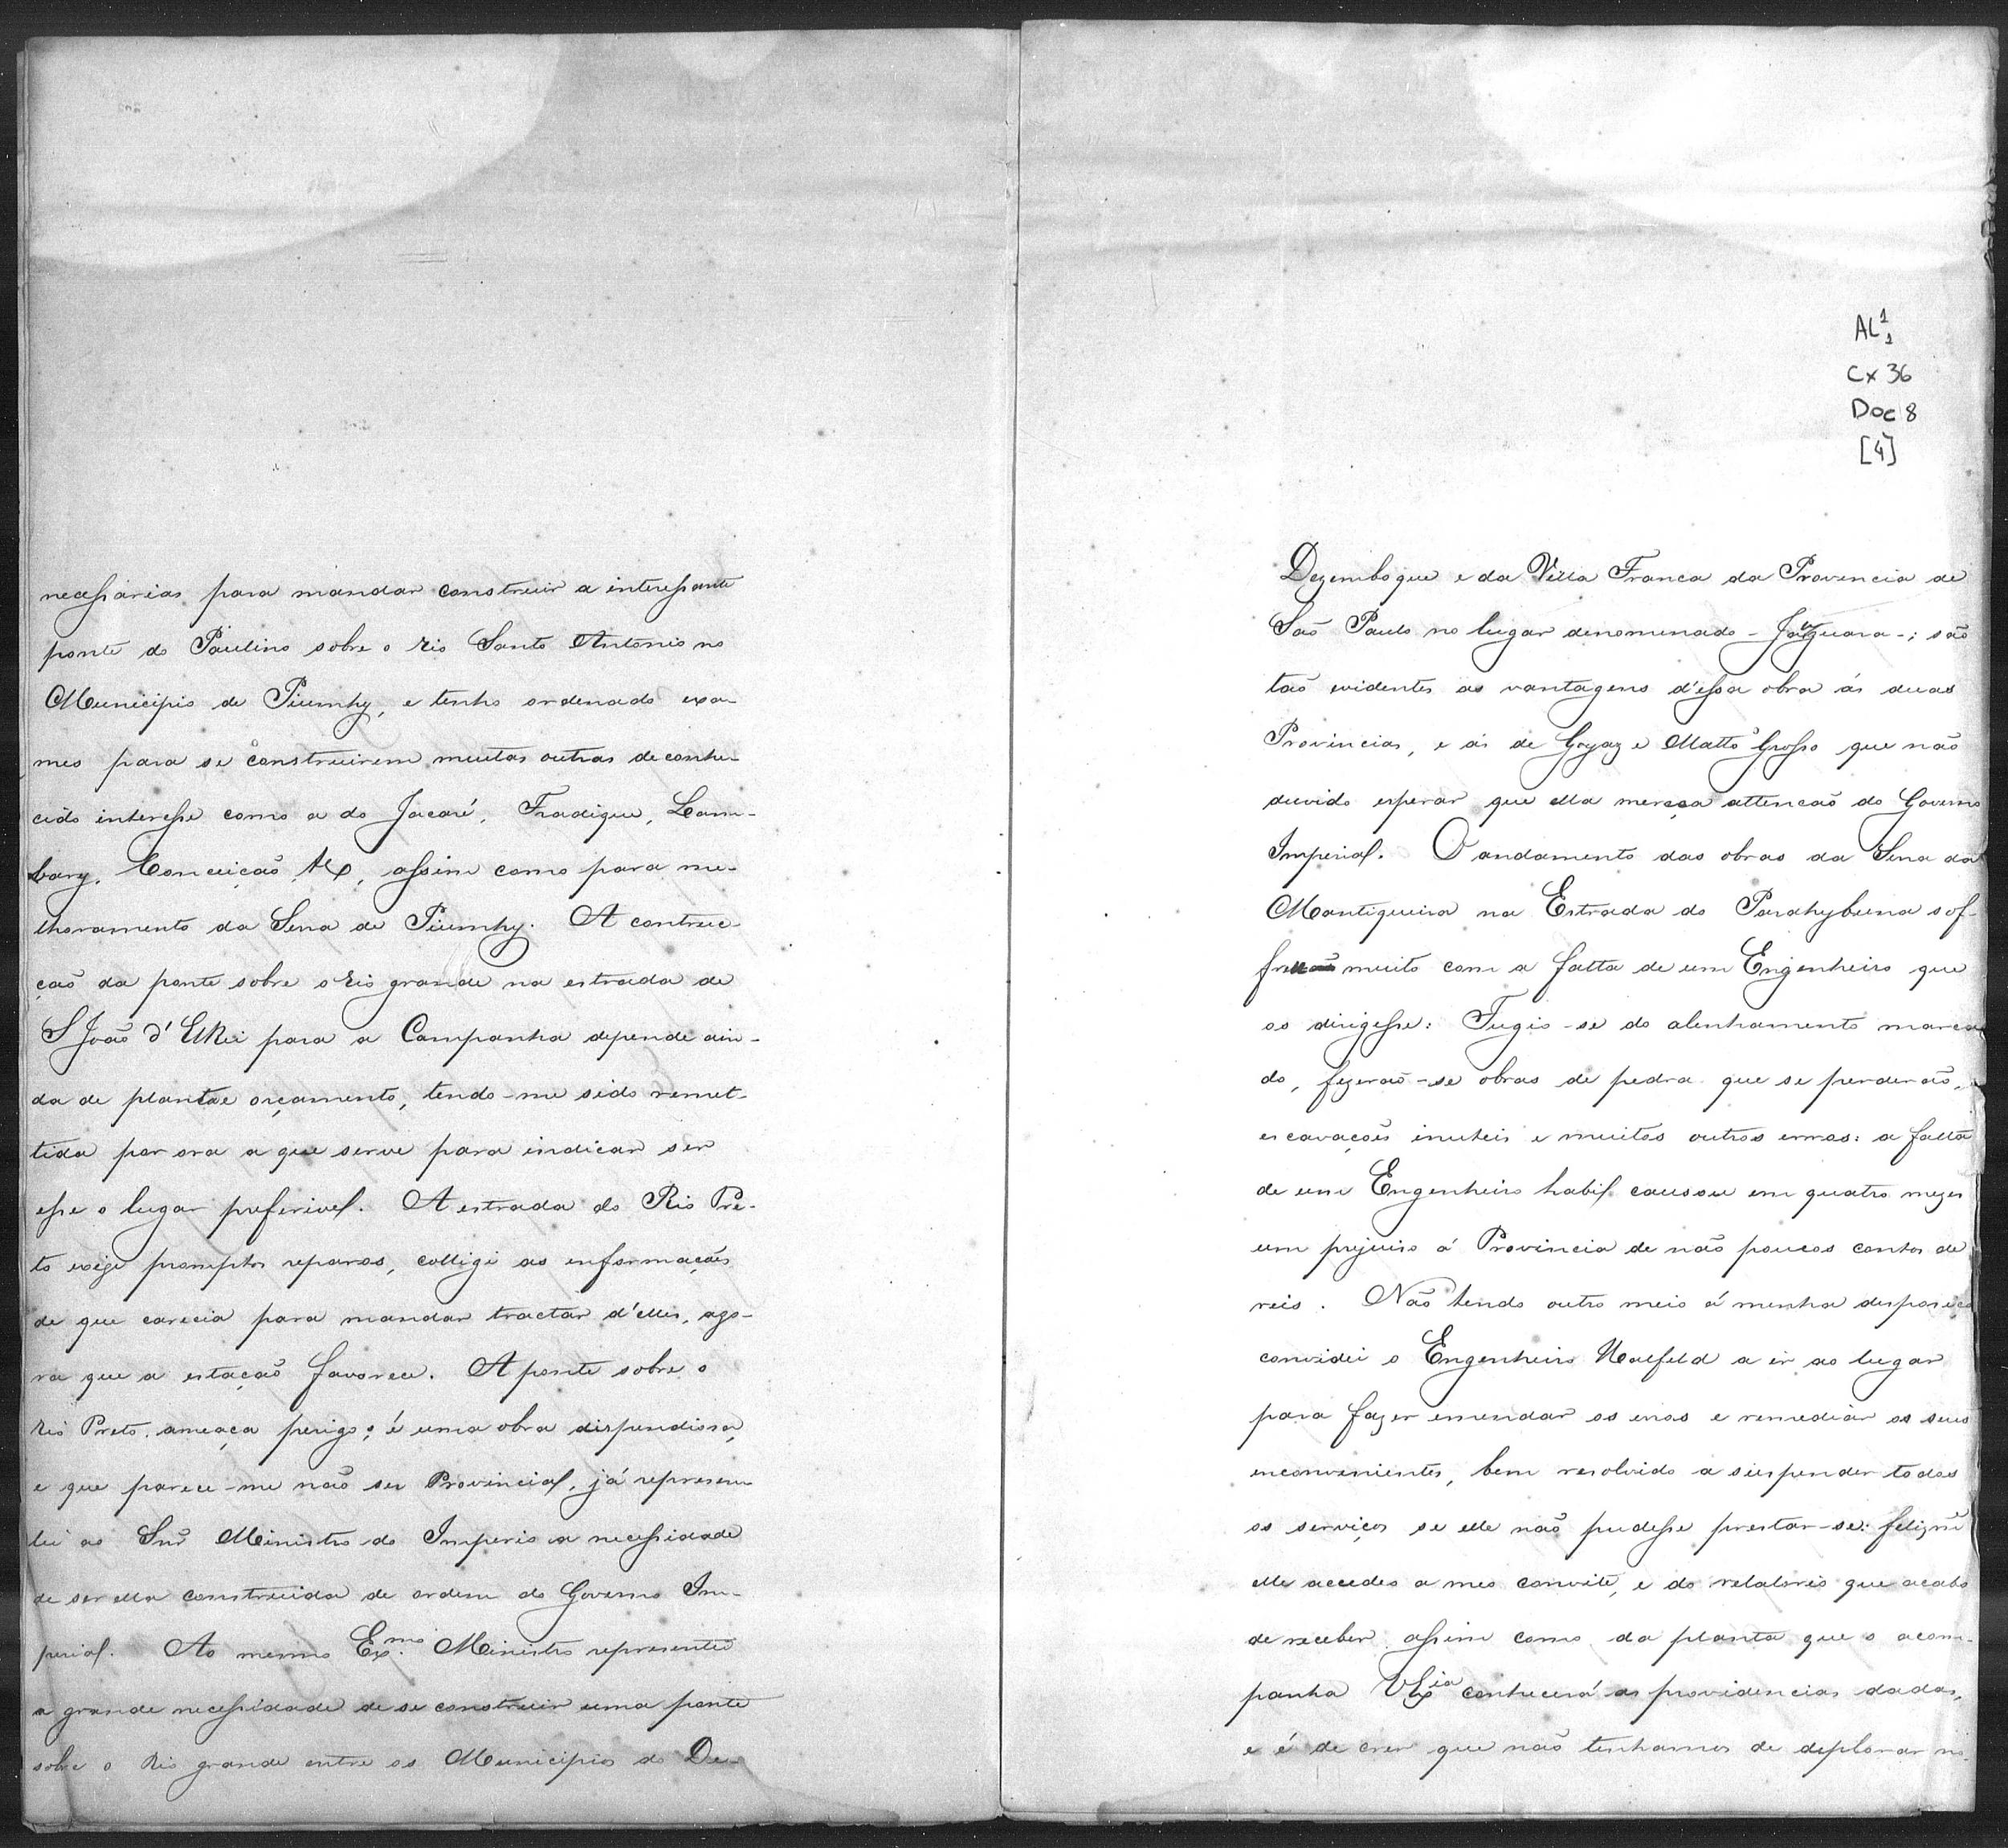 necessarias para mandar construir a interessante
ponte do Paulino sobre o rio Santo Antonio no
Municipio de Piumhy, e tenho ordenado exa-
mes para se construirem muitas outras de conhe-
cido interesse como a do Jacaré, Fradique, Lam-
bary, Conceição &, assim como para me-
lhoramento da Serra de Piumhy. A contruc-
ção da ponte sobre o rio grande na estrada de
S João d'ElRei para a Campanha depende ain-
da de planta e orçamento, tendo-me sido remet-
tida por ora a que serve para indicar ser
esse o lugar preferivel. A estrada do Rio Pre-
to exige promptos reparos, colligi as informações
de que carecia para mandar tractar d'elles, ago-
ra que a estação favorece. A ponte sobre o
rio Preto ameaça perigo; é uma obra dispendiosa,
e que parece-me não ser Provincial, já represen-
tei ao Snr Ministro do Imperio a necessidade
de ser ella construida de ordem do Governo Im-
perial. Ao mesmo Exmo. Ministro representei
a grande necessidade de se construir uma ponte
sobre o Rio grande entre os Municipios do De-
AL1 1
Cx 36
Doc 8
[4]
Dezemboque e da Villa Franca da Provincia de
São Paulo no lugar denominado - Jaguara -; são
tão evidentes as vantagens d'essa obra ás duas
Provincias, e ás de Goyaz e Matto Grosso que não
duvido esperar que ella mereça attencão do Governo
Imperial. O andamento das obras da Serra da
Mantiqueira na Estrada do Parahybuna sof-
muito com a falta de um Engenheiro que
as dirigesse: Fugio-se do alenhamento marca
do, fizerão-se obras de pedra que se perderão,
escavações inuteis e muitos outros erros: a falta
de um Engenheiro habil causou em quatro mezes
um prejuiso á Provincia de não poucos contos de
reis. Não tendo outro meio á minha disposição
convidei o Engenheiro Halfeld a ir ao lugar
para fazer emendar os erros e remediar os seus
inconvenientes, bem resolvido a suspender todos
os serviços se elle não pudesse prestar-se: felizme
elle accedeo a meo convite, e do relatorio que acabo
de receber, assim como da planta que o acom-
panha VExia conhecerá as providencias dadas,
e é de crer que não tenhamos de deplorar no-